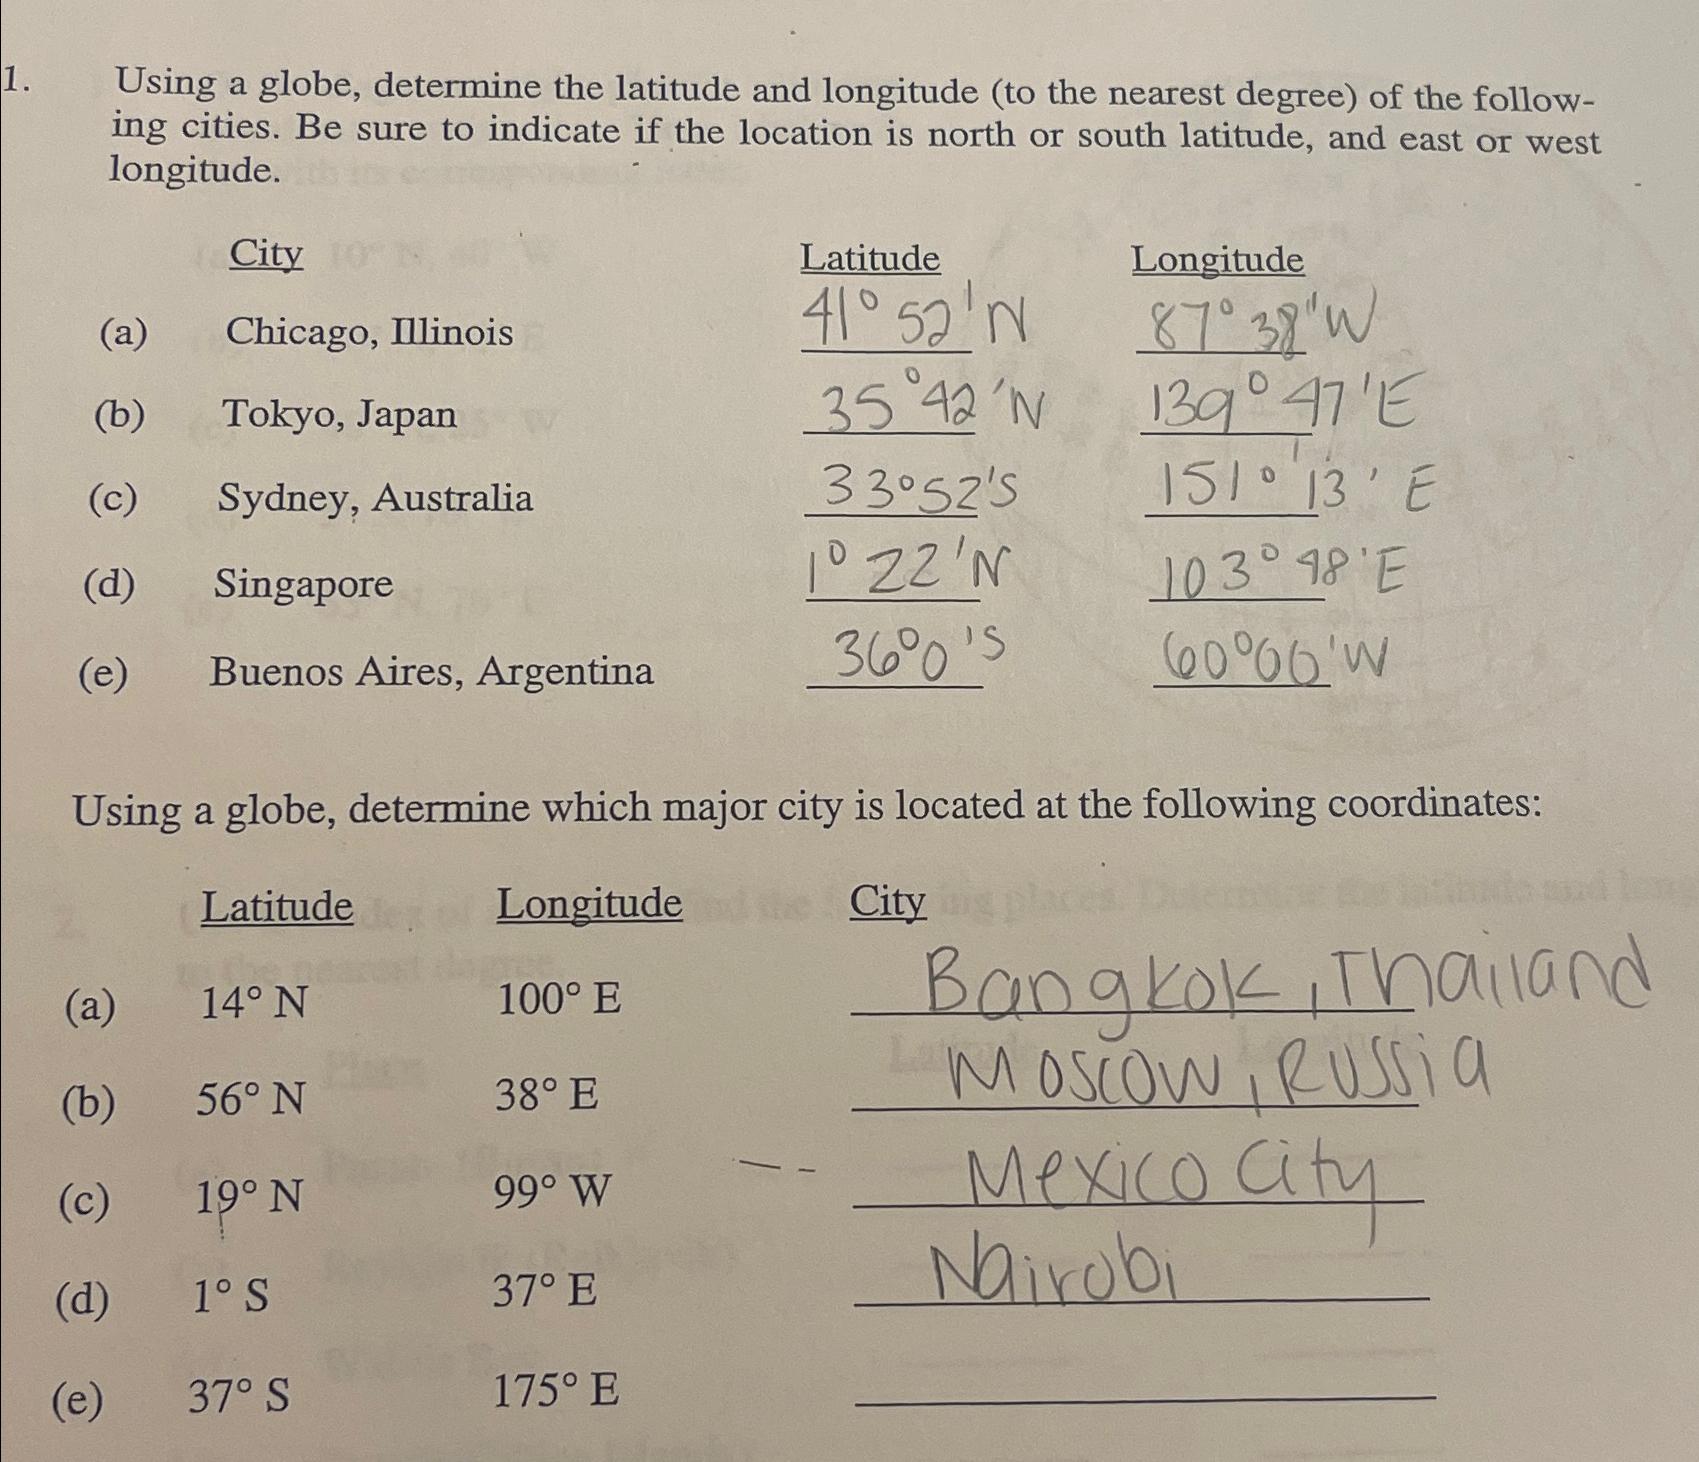 1. Using a globe, determine the latitude and longitude (to the nearest degree) of the follow-
ing cities. Be sure to indicate if the location is north or south latitude, and east or west
longitude.
City Latitude Longitude
(a) Chicago, Illinois 41° 52' N 87° 38" W
(b) Tokyo, Japan 35° 42' N 139° 47' E
(c) Sydney, Australia 33° 52' S 151° 13' E
(d) Singapore 1° 22' N 103° 48' E
(e) Buenos Aires, Argentina 36° 0' S 60° 00' W
Using a globe, determine which major city is located at the following coordinates:
Latitude Longitude City
(a) 14° N 100° E Bangkok, Thailand
(b) 56° N 38° E Moscow, Russia
(c) 19° N 99° W Mexico City
(d) 1° S 37° E Nairobi
(e) 37° S 175° E